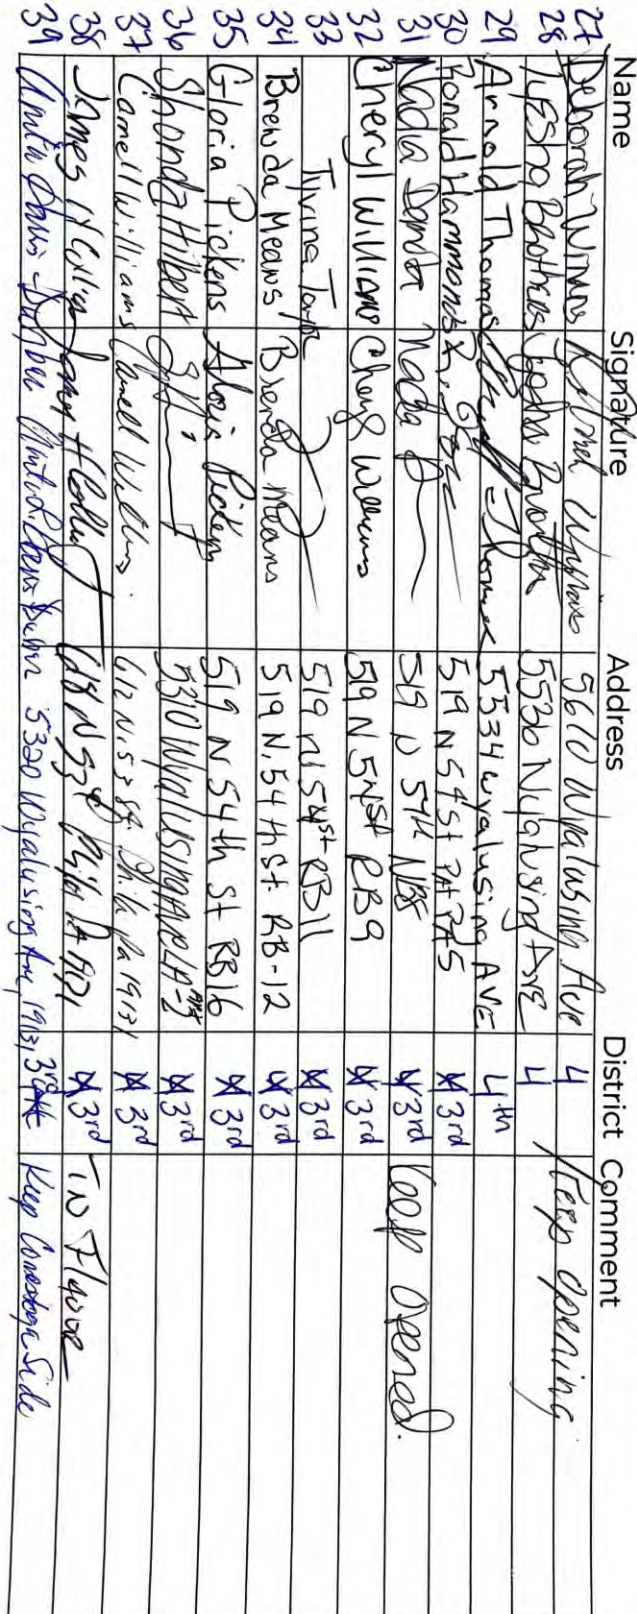 Name Signature Address District Comment
27 Deborah Winns 5610 Wyalusing Ave 4 Keep opening
28 Brothers 5536 Wyalusing AVE 4
29 Arnold Thomas Thomas 5534 wyalusing AVE 4th
30 Ronald Hammonds 519 N 54 St 3rd
31 Nadia Nadia 519 N 54th 3rd Keep Opened.
32 Cheryl Williams Cheryl Williams 519 N 54 St RB9 3rd
33 519 N 54 St RB11 3rd
34 Brenda Means Brenda Means 519 N. 54th St RB-12 3rd
35 Gloria Pickens Gloria Pickens 519 N 54th St RB16 3rd
36 Shonda Hilbert 5310 Wyalusing 3rd
37 Carnell Williams Carnell Williams 612 N. 53 St. Phila Pa 19131 3rd
38 James H Collins James H Collins N 53 Phila Pa 3rd IN FAVOR
39 Davis 5320 Wyalusing Ave, 19131 3rd Keep Side